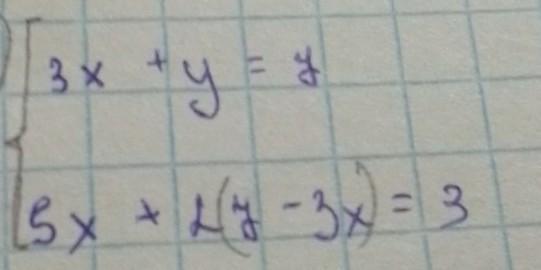 3x + y = 7
5x + 2(7 - 3x) = 3